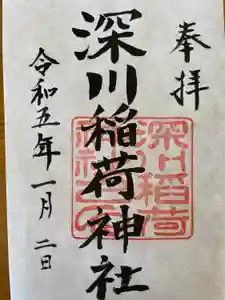 奉拝
深川稲荷神社
令和五年一月二日
深川稲荷